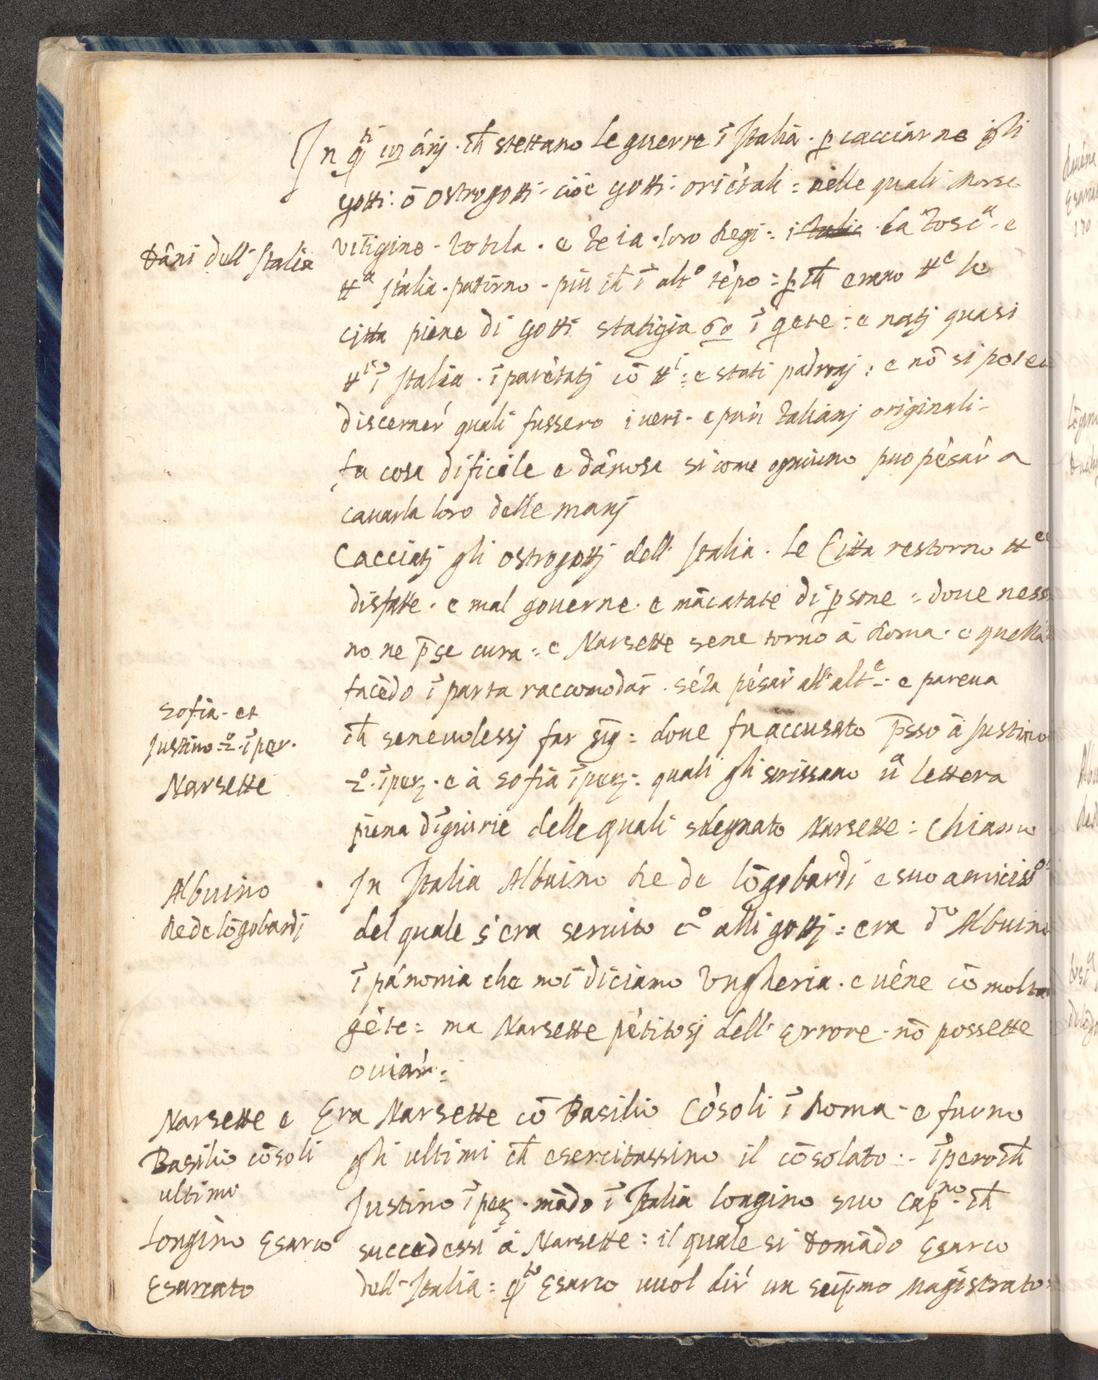 In q̃ti un ánj. ch̃ stettano le guerre ĩ Italia. p̱ cacciarne gli
gotti: ò ostrogotti. cioè gotti. oriẽtali: nelle quali morse
Dãni dell' Italia
Vitigino. Totila. e Teia. loro Regi: i Italia. la Tosca. e
tta Italia. patirno. più ch̃ ĩ alto tẽpo: p̱ch̃ erano tte le
citta piene di gotti statigia 60 ĩ gete: e natj quasi
tti ĩ Italia. ĩparẽtatj cõ tti: e stati padronj: e nõ si potea
discerner quali fussero i veri. e puri Italianj originali.
fu cosa dificile e dãnosa si come ogniuno puo pẽsar a
cavarla loro delle manj
Cacciatj gli ostrogottj dell' Italia. Le Citta restorno tte
disfatte. e mal governe. e mãcatate di p̱sone: dove ness
no ne p̃se cura: e Narsette sene torno à Roma. e quella
facẽdo ĩ parta raccomodar. sẽza pẽsar all' alte: e pareva
Sofia. et
Justino 2o. ĩper.
Narsette
ch̃ senevolessj far sig̃: dove fu accusato p̃sso à Justino
2o. ĩper. e à Sofia ĩper: quali gli scrissano ua lettera
piena d'ĩgiurie delle quali sdegnato Narsette: chiamo
Albuino
Re de lõgobardj
In Italia Albuino Re de lõgobardi e suo amicissio
del quale s'era servito co alli gottj: era do Albuino
ĩ pánonia che noi diciamo Vngheria. e véne cõ molta
gẽte: ma Narsette pẽtitosj dell' errore. nõ possette
oviar:
Narsette e
Basilio cõsoli
ultimi
Era Narsette cõ Basilio Cõsoli ĩ Roma. e furno
gli ultimi ch̃ esercitassino il cõsolato: ĩperoch̃
Justino ĩper. mãdo ĩ Italia longino suo capno. ch̃
Longino Esarco
Esarcato
succedessi à Narsette: il quale si domãdo Esarco
dell' Italia: q̃to Esarco vuol dir un sup̱mo magistrato: